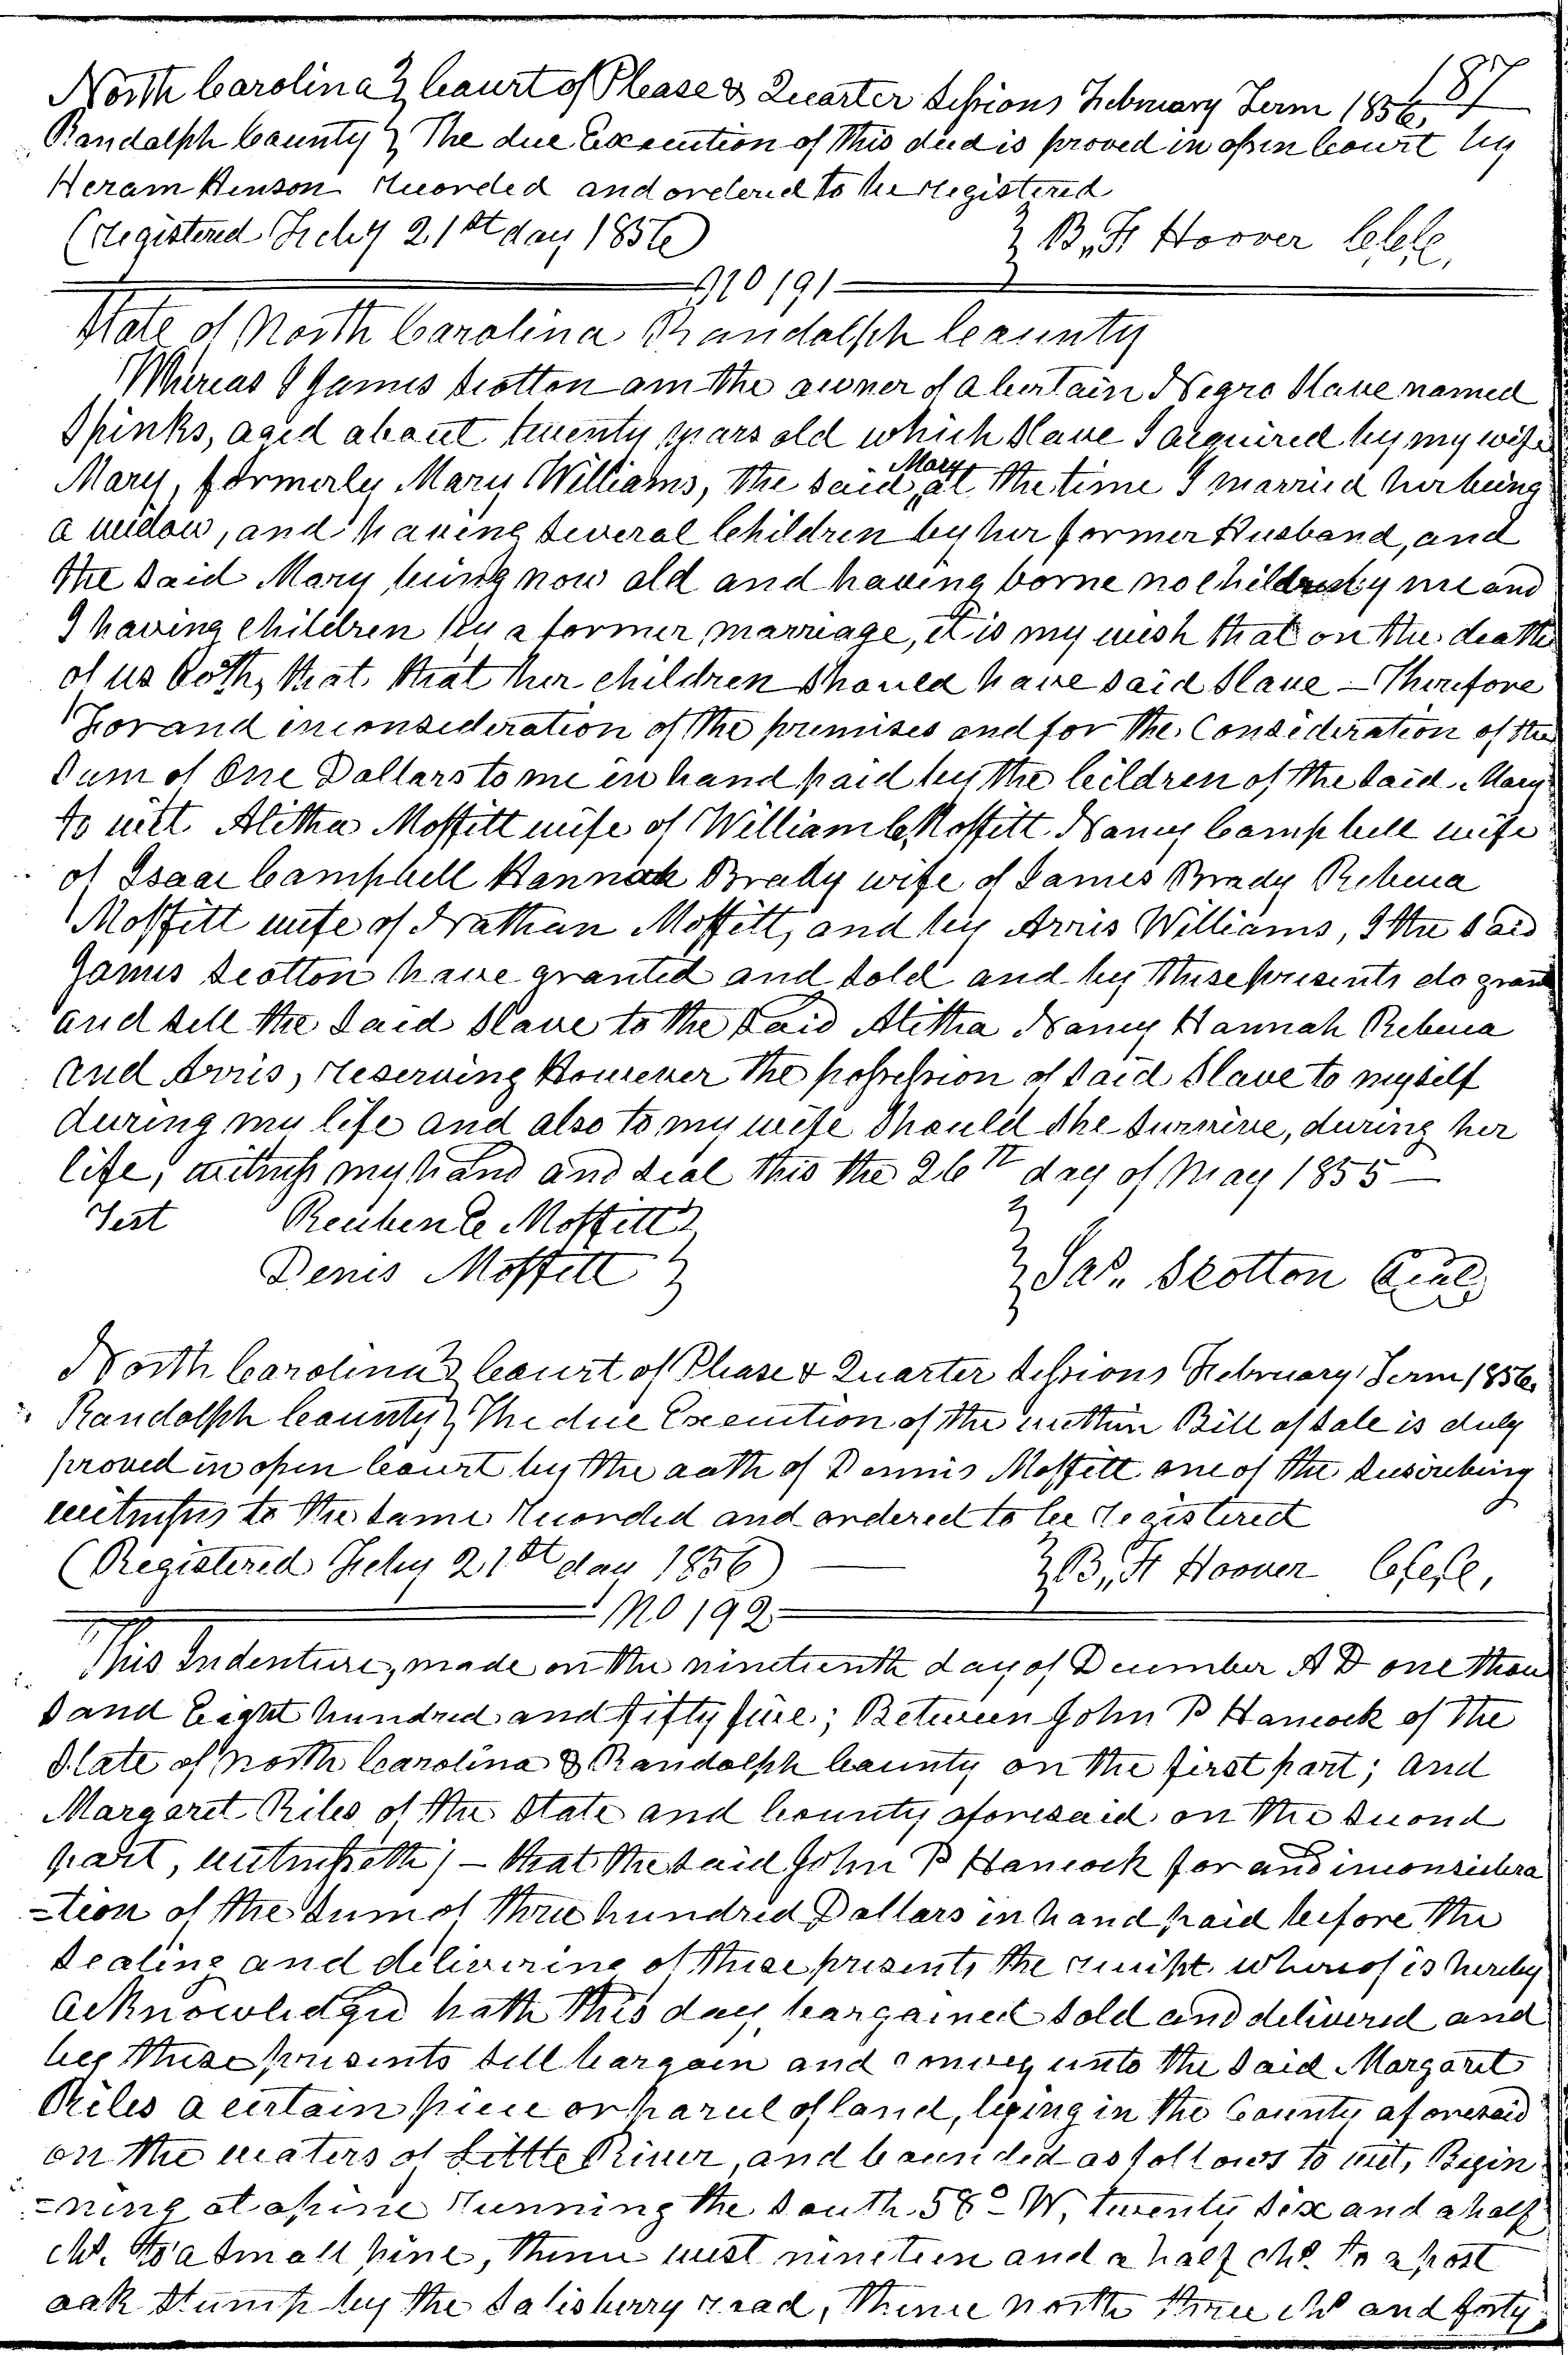 187
North Carolina } Caurt of Please & Quarter Sessions February Term 1856,
Randolph Caunty } The due Execution of this deed is proved in open Court by
Heram Henson Recorded and ordered to be Registered
(Registered Feby 21st day 1856) } B,, F, Hoover C,C,C,
No 191
State of North Carolina Randolph Caunty
Whereas I James Scotton am the owner of a Certain Negro Slave named
Spinks, aged abaut twenty years old which Slave I acquired by my wife
Mary, formerly Mary Williams, the said Mary at the time I married her being
a widow, and having several Children by her former Husband, and
the said Mary being now old and having borne no children by me and
I having children by a former marriage, it is my wish that on the death
of us both, that, that her children should have said Slave – Therefore
For and in consideration of the premises and for the Consideration of the
Sum of One Dollars to me in hand paid by the Cildren of the said Mary
to witt Alitha Moffitt wife of William C, Moffitt Nancy Campbell wife
of Isaac Campbell Hannah Brady wife of James Brady Rebecca
Moffitt wife of Nathan Moffitt, and by Arris Williams, I the said
James Scotton have granted and sold and by these presents do grant
and sell the said Slave to the said Alitha Nancy Hannah Rebecca
and Arris, Reserving However the possession of said Slave to myself
during my life and also to my wife should she survive, during her
life, witness my hand and seal this the 26th day of May 1855 –
Test Reuben C Moffitt }
Denis Moffitt } } Jas,, Scotton Seal
North Carolina } Caurt of Please & Quarter Sessions February Term 1856,
Randolph Caunty } The due Execution of the within Bill of Sale is duly
proved in open Caurt by the aath of Dennis Moffitt one of the Suscribing
witnesses to the same Recorded and ordered to be Registered
(Registered Feby 21st day 1856) — } B,, F Hoover C,C,C,
No 192
This Indenture, made on the nineteenth day of December A D one thou
sand Eight hundred and fifty five; Between John P Hancock of the
State of North Carolina & Randolph Caunty on the first part; and
Margaret Riles of the State and County aforesaid on the second
part, witnesseth; – that the said John P Hancock for and in considera
-tion of the sum of three hundred Dallars in hand paid before the
sealing and delivering of these presents the receipt whereof is hereby
acknowledged hath this day bargained sold and delivered and
by these presents sell bargain and convey unto the said Margaret
Riles a certain piece or parcel of land, lying in the County aforesaid
on the waters of Little River, and baunded as follows to wit, Begin
-ning at a pine Running the South 58° W, twenty six and a half
chs. to a small pine, thence west nineteen and a half chs. to a post
oak stump by the Salisberry road, thence north three chs and forty